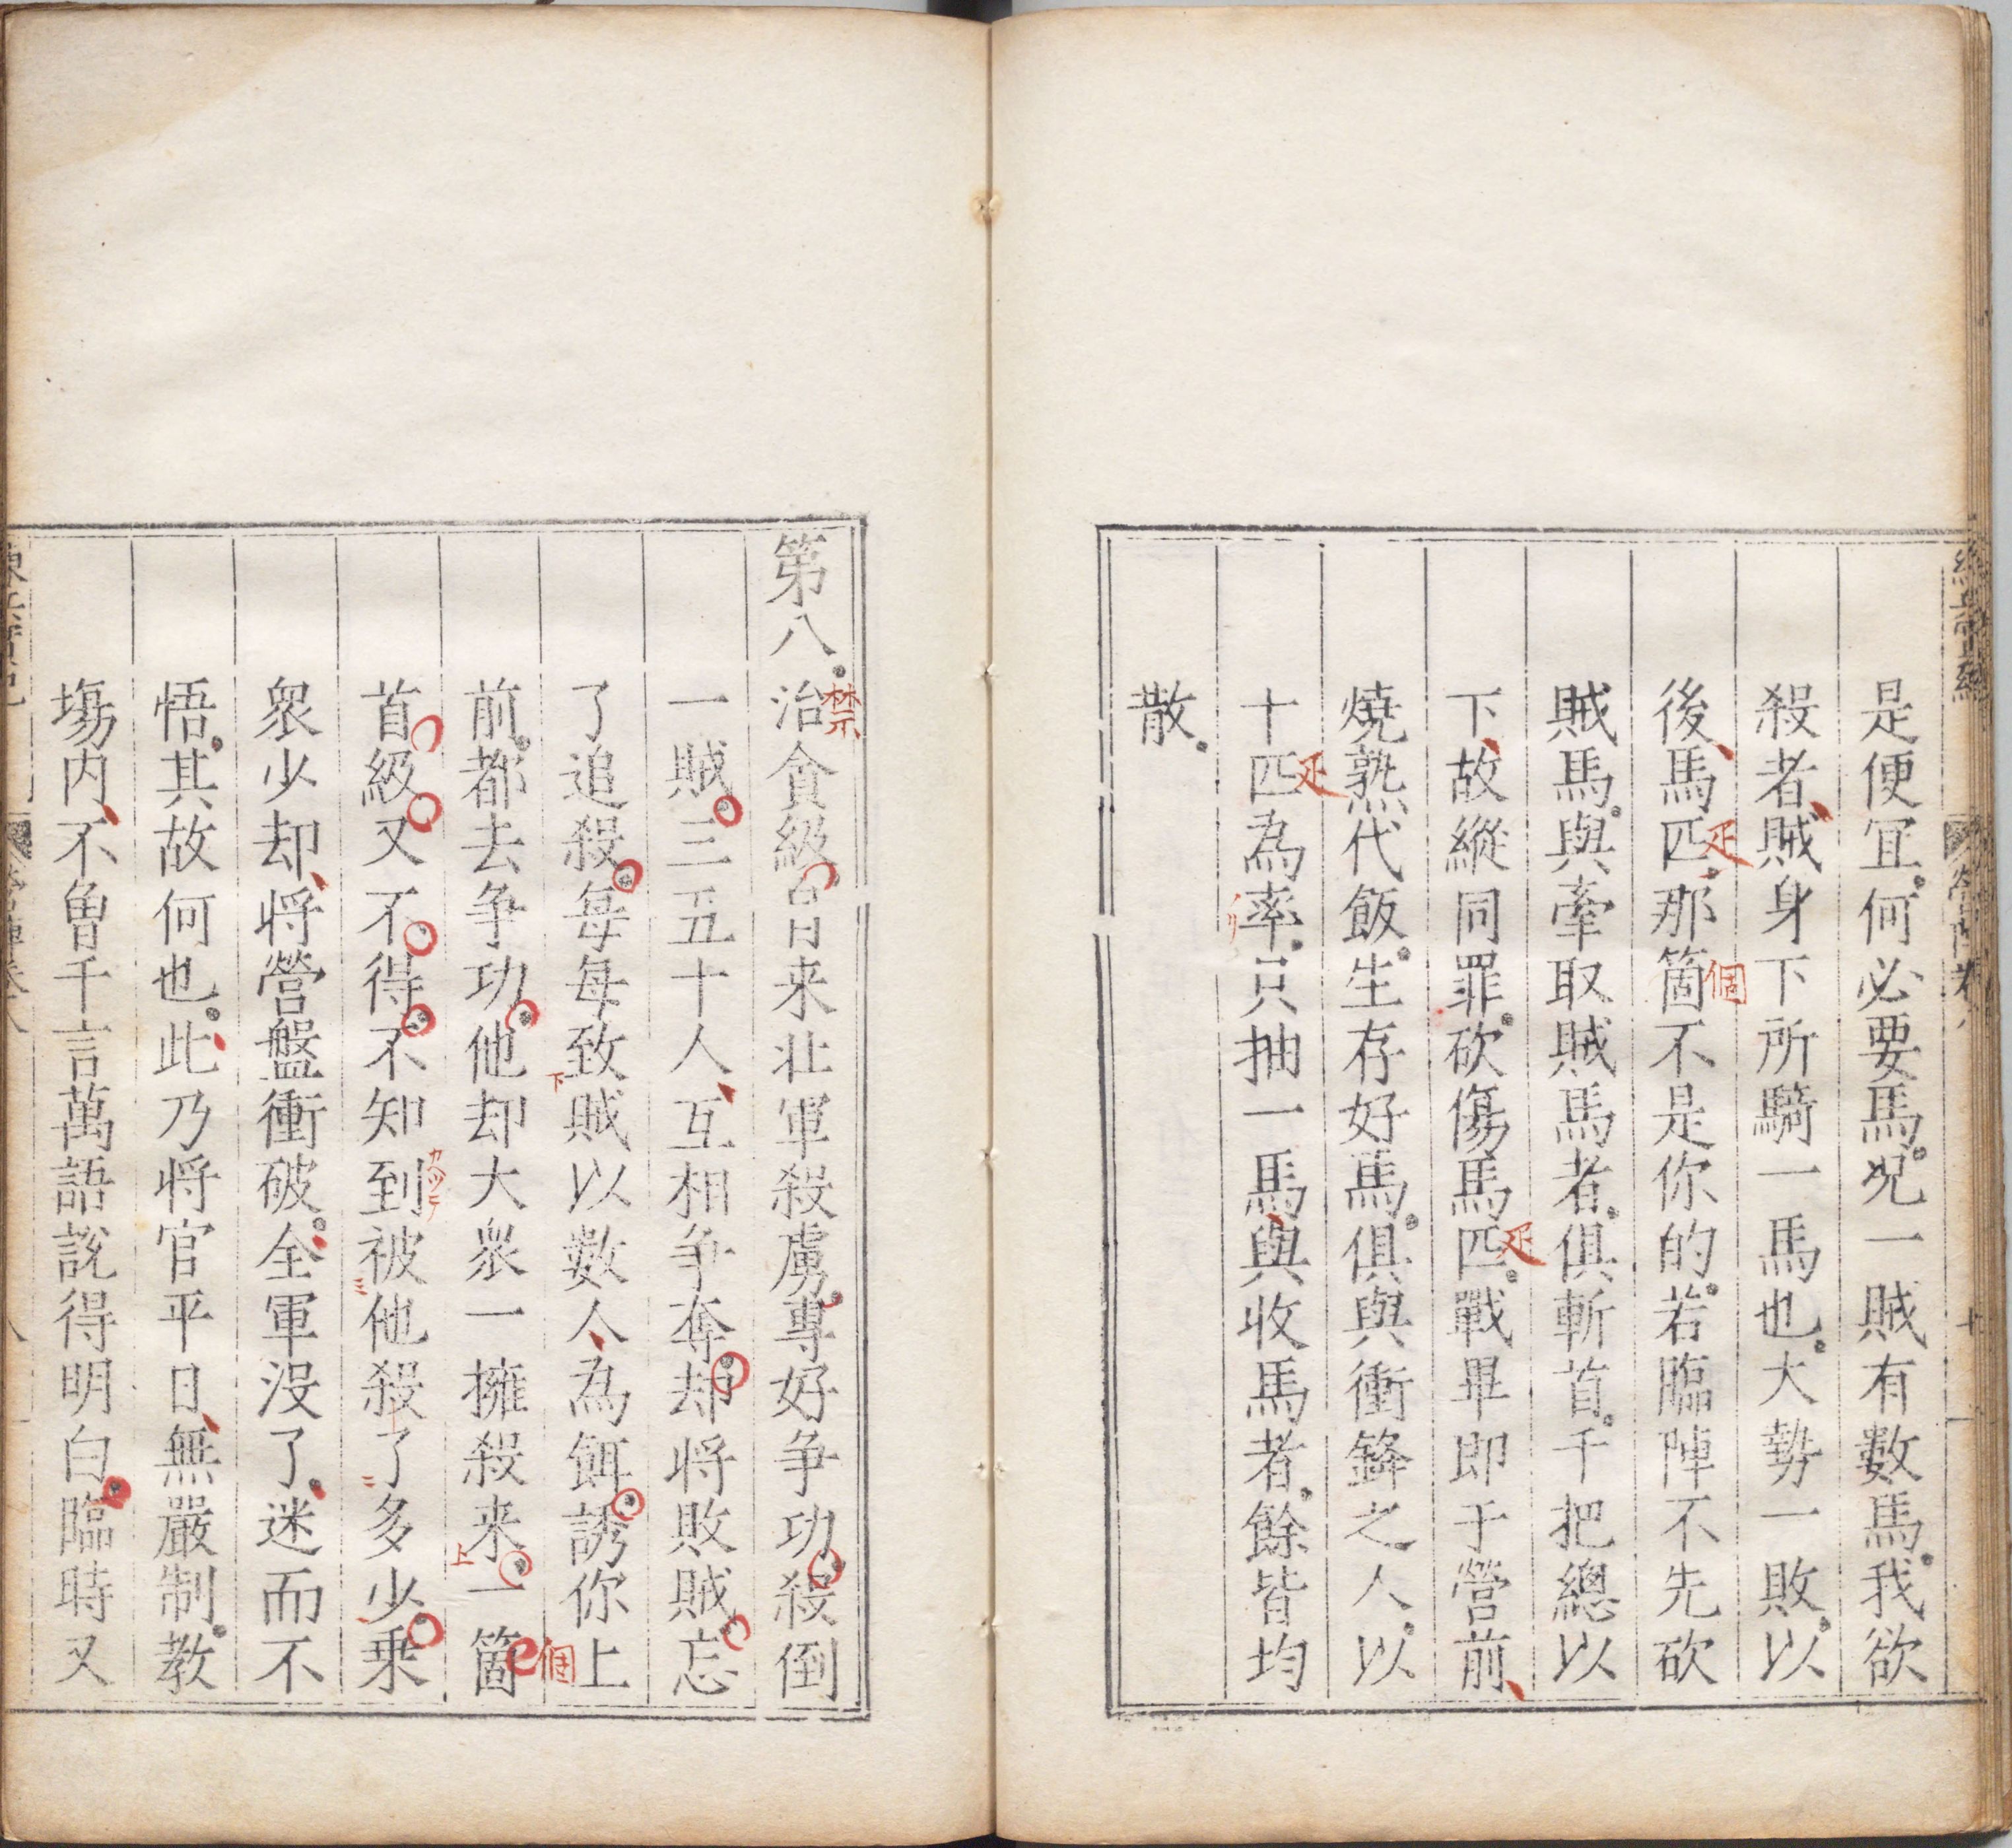 是便冝何必要馬況一賊有數馬我欲
殺者賊身下所騎一馬也大勢一敗以
後馬匹那箇不是你的若臨陣不先砍
賊馬與牽取賊馬者俱斬首千把總以
下故縱同罪砍傷馬匹戰畢即于營前
燒熟代飯生存好馬俱與衝鋒之人以
十匹為率只抽一馬與收馬者餘皆均
散
第八治貪級昔来壮軍殺虜專好争功殺倒
一賊三五十人互相争奪却将敗賊忘
了追殺每每致賊以數人為餌誘你上
前都去争功他却大衆一擁殺来一箇
首級又不得不知到被他殺了多少乗
衆少却将營盤衝破全軍没了迷而不
悟其故何也此乃将官平日無嚴制教
塲内不曽千言萬語說得明白臨時又
禁
疋
疋
疋
個
個
下
上